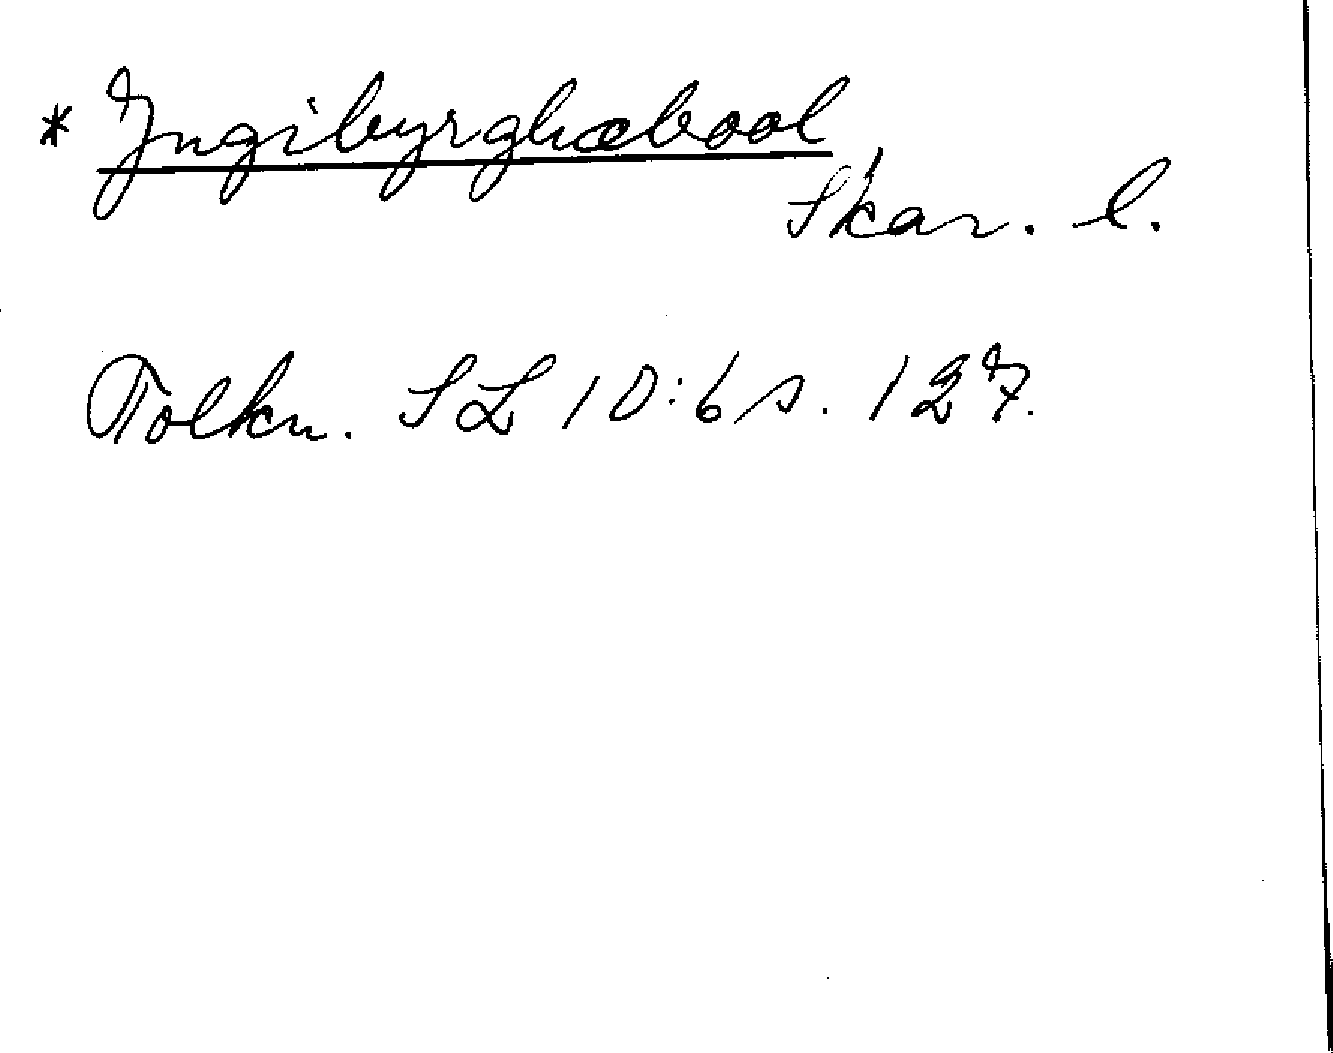 * Jngibyrghæbool
Skar. l.
Tolkn. SL 10:6 s. 127.